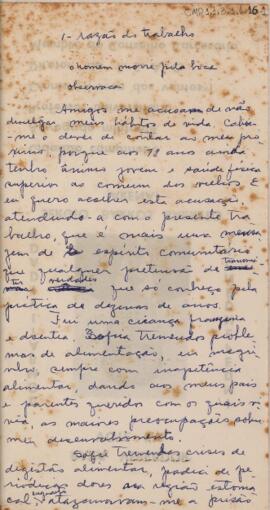 1- razão do trabalho
o homem morre pela boca
observação
Amigos me acusam de não
divulgar meus hábitos de vida. Cabe-
me o dever de contar ao meu pró
ximo, porque aos 72 anos ainda
tenho ânimo jovem e saúde física
superior ao comum dos velhos. E
eu quero acolher esta acusação,
atendendo-a com o presente tra
balho, que é mais uma mensa
gem de espírito comunitário
que qualquer pretensão de transmi
tir verdades que só conheço pela
prática de dezenas de anos.
Fui uma criança franzina
e doentia. Sofria tremendos proble
mas de alimentação, era magri
nho, sempre com inapetência
alimentar, dando aos meus pais
e parentes queridos com os quais vi
via, as maiores preocupações sobre
meu desenvolvimento.
Sofri tremendas crises de
digestão alimentar, padeci de pe
riódicas dores na região estoma
cal. atazanavam-me a prisão